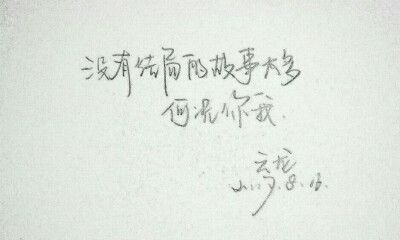 没有结局的故事太多
何况你我.
云龙
8.16.